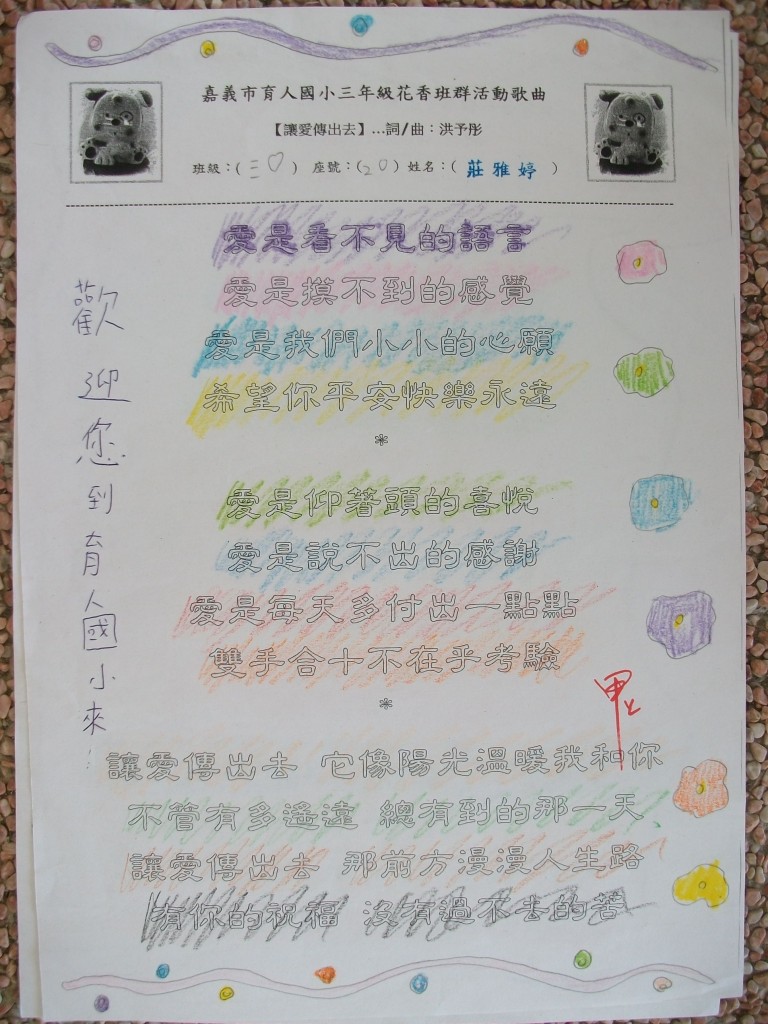 嘉義市育人國小三年級花香班群活動歌曲
【讓愛傳出去】…詞/曲：洪予彤
班級：(三♡) 座號：(20) 姓名：(莊雅婷)
愛是看不見的語言
愛是摸不到的感覺
愛是我們小小的心願
希望你平安快樂永遠
*
愛是仰著頭的喜悅
愛是說不出的感謝
愛是每天多付出一點點
雙手合十不在乎考驗
*
讓愛傳出去 它像陽光溫暖我和你
不管有多遙遠 總有到的那一天
讓愛傳出去 那前方漫漫人生路
有你的祝福 沒有過不去的苦
歡迎您到育人國小來
甲上